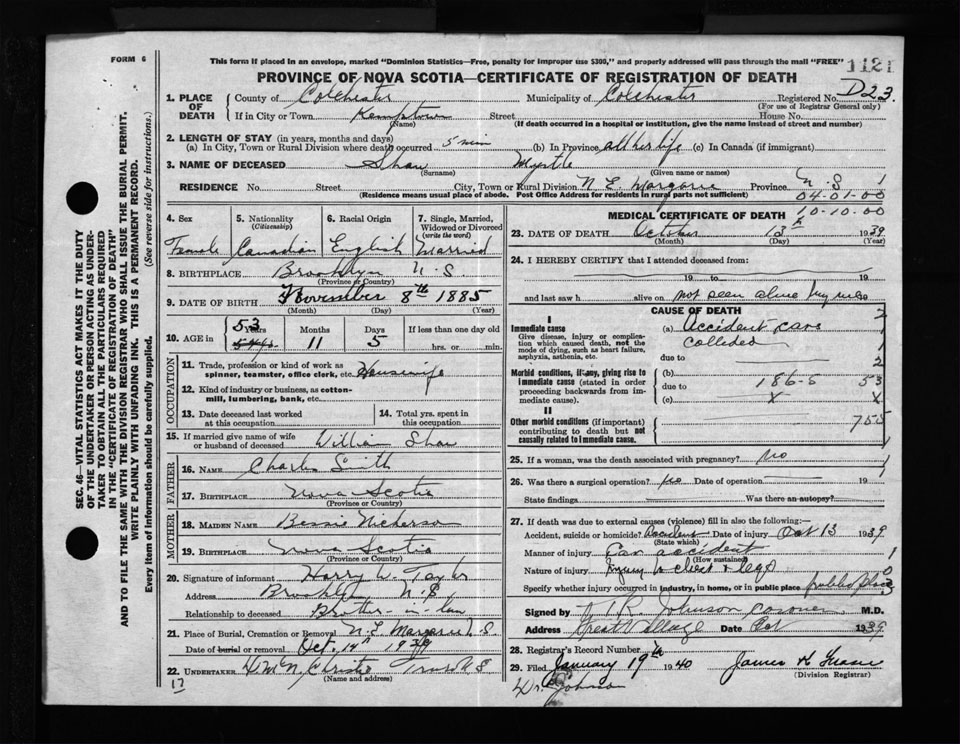 FORM 6
This form if placed in an envelope, marked "Dominion Statistics—Free, penalty for improper use $300," and properly addressed will pass through the mail "FREE"
1121
PROVINCE OF NOVA SCOTIA—CERTIFICATE OF REGISTRATION OF DEATH
1. PLACE OF DEATH
County of Colchester Municipality of Colchester Registered No. D23.
(For use of Registrar General only)
If in City or Town Kemptown Street House No.
(Name) (If death occurred in a hospital or institution, give the name instead of street and number)
2. LENGTH OF STAY (in years, months and days)
(a) In City, Town or Rural Division where death occurred 5 min (b) In Province all her life (c) In Canada (if immigrant)
3. NAME OF DECEASED Shaw Myrtle
(Surname) (Given name or names)
RESIDENCE No. Street City, Town or Rural Division N. E. Margaree Province N.S 1
(Residence means usual place of abode. Post Office Address for residents in rural parts not sufficient) 04-01-00
10-10-00
4. Sex
Female
5. Nationality
(Citizenship)
Canadian
6. Racial Origin
English
7. Single, Married, Widowed or Divorced
(write the word)
Married
8. BIRTHPLACE Brooklyn N.S.
(Province or Country)
9. DATE OF BIRTH November 8th 1885
(Month) (Day) (Year)
10. AGE in 53 Years Months 11 Days 5 If less than one day old
hrs. or min.
OCCUPATION
11. Trade, profession or kind of work as spinner, teamster, office clerk, etc. Housewife
12. Kind of industry or business, as cotton-mill, lumbering, bank, etc.
13. Date deceased last worked at this occupation
14. Total yrs. spent in this occupation
15. If married give name of wife or husband of deceased William Shaw
FATHER
16. NAME Charles Smith
17. BIRTHPLACE Nova Scotia
(Province or Country)
MOTHER
18. MAIDEN NAME Bessie Nickerson
19. BIRTHPLACE Nova Scotia
(Province or Country)
20. Signature of informant Harry W. Taylor
Address Brooklyn N.S.
Relationship to deceased Brother-in-law
21. Place of Burial, Cremation or Removal N.E. Margaree N.S.
Date of burial or removal Oct. 14th 1939
22. UNDERTAKER Christie Truro N.S
(Name and address)
17
MEDICAL CERTIFICATE OF DEATH
23. DATE OF DEATH October 13th 1939
(Month) (Day) (Year)
24. I HEREBY CERTIFY that I attended deceased from:
19 to 19
and last saw h alive on not seen alive by me
CAUSE OF DEATH
2
I
Immediate cause
Give disease, injury or complication which caused death, not the mode of dying, such as heart failure, asphyxia, asthenia, etc.
(a) Accident cars 1
collided
due to 1
Morbid conditions, if any, giving rise to immediate cause (stated in order proceeding backwards from immediate cause).
(b) 2
due to 186-5 53
(c) x x
II
Other morbid conditions (if important) contributing to death but not causally related to immediate cause.
755
1
25. If a woman, was the death associated with pregnancy? No
26. Was there a surgical operation? No Date of operation 19 1
State findings Was there an autopsy?
27. If death was due to external causes (violence) fill in also the following:—
Accident, suicide or homicide? Accident Date of injury Oct 13 1939
(State which)
Manner of injury Car accident 1
(How sustained)
Nature of injury Injury to chest & legs 0
Specify whether injury occurred in industry, in home, or in public place public place 3
Signed by T R Johnson coroner M.D.
Address Great Village Date Oct 1939
28. Registrar's Record Number
29. Filed January 19th 1940 James H Fraser
(Division Registrar)
Dr. Johnson
SEC. 46—VITAL STATISTICS ACT MAKES IT THE DUTY OF THE UNDERTAKER OR PERSON ACTING AS UNDERTAKER TO OBTAIN ALL THE PARTICULARS REQUIRED IN THE "CERTIFICATE OF REGISTRATION OF DEATH"
AND TO FILE THE SAME WITH THE DIVISION REGISTRAR WHO SHALL ISSUE THE BURIAL PERMIT.
WRITE PLAINLY WITH UNFADING INK. THIS IS A PERMANENT RECORD.
Every item of Information should be carefully supplied. (See reverse side for instructions.)